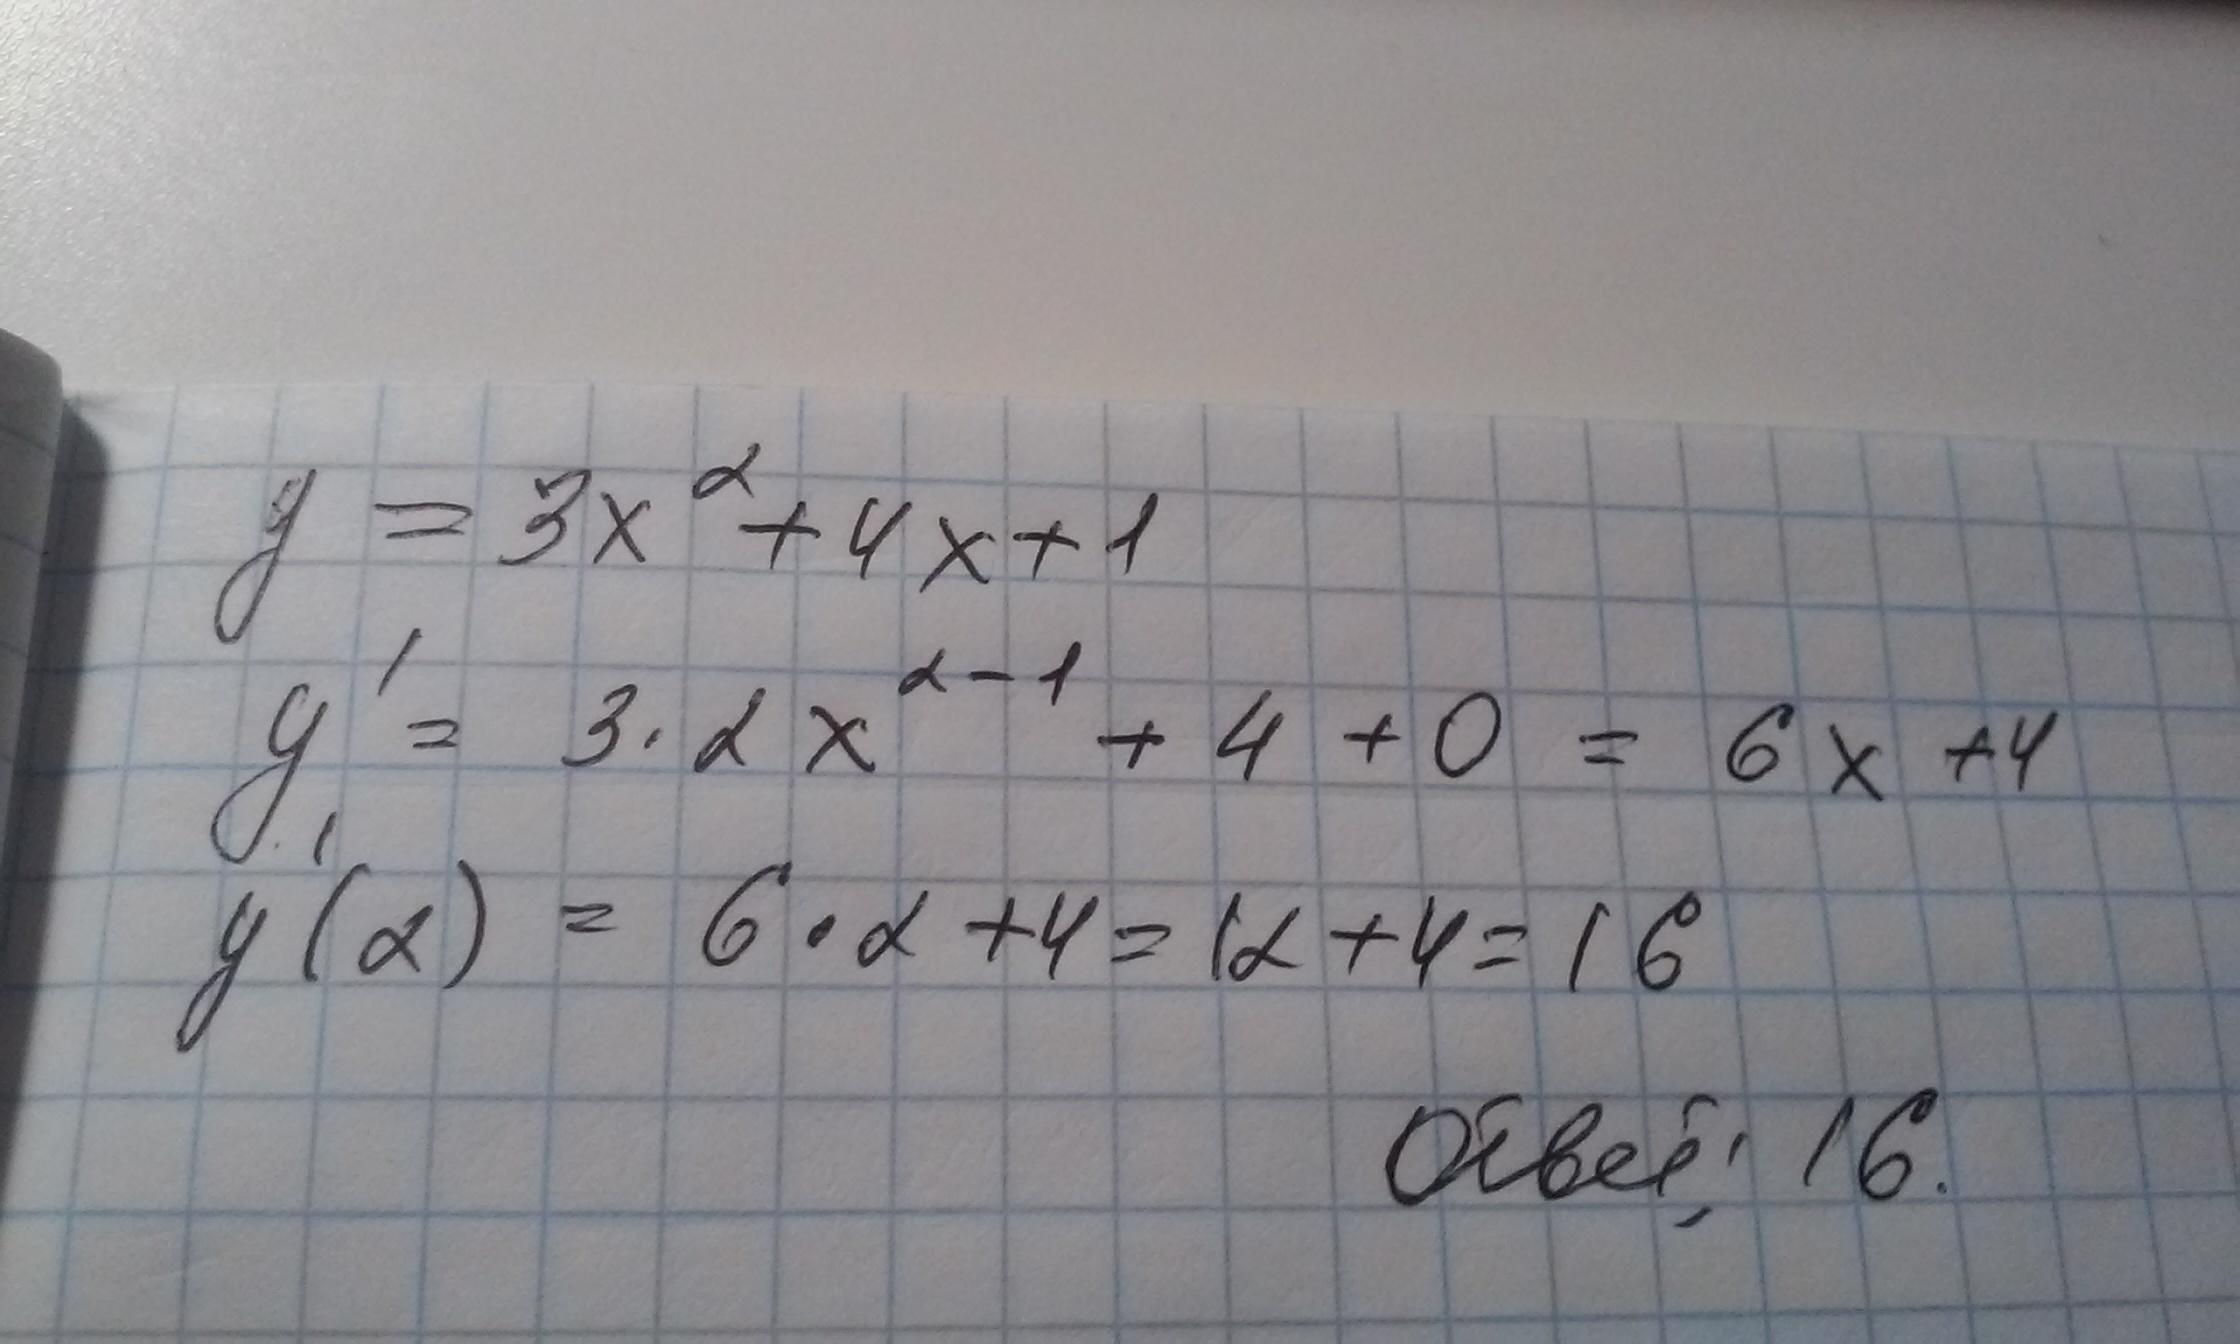 y = 3x² + 4x + 1
y' = 3 · 2x²⁻¹ + 4 + 0 = 6x + 4
y'(2) = 6 · 2 + 4 = 12 + 4 = 16
Ответ: 16.